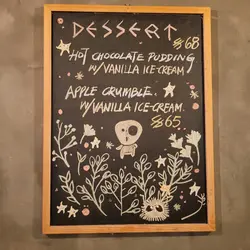 DESSERT
HOT CHOCOLATE PUDDING $68
W/VANILLA ICE-CREAM
APPLE CRUMBLE.
W/VANILLA ICE-CREAM.
$65